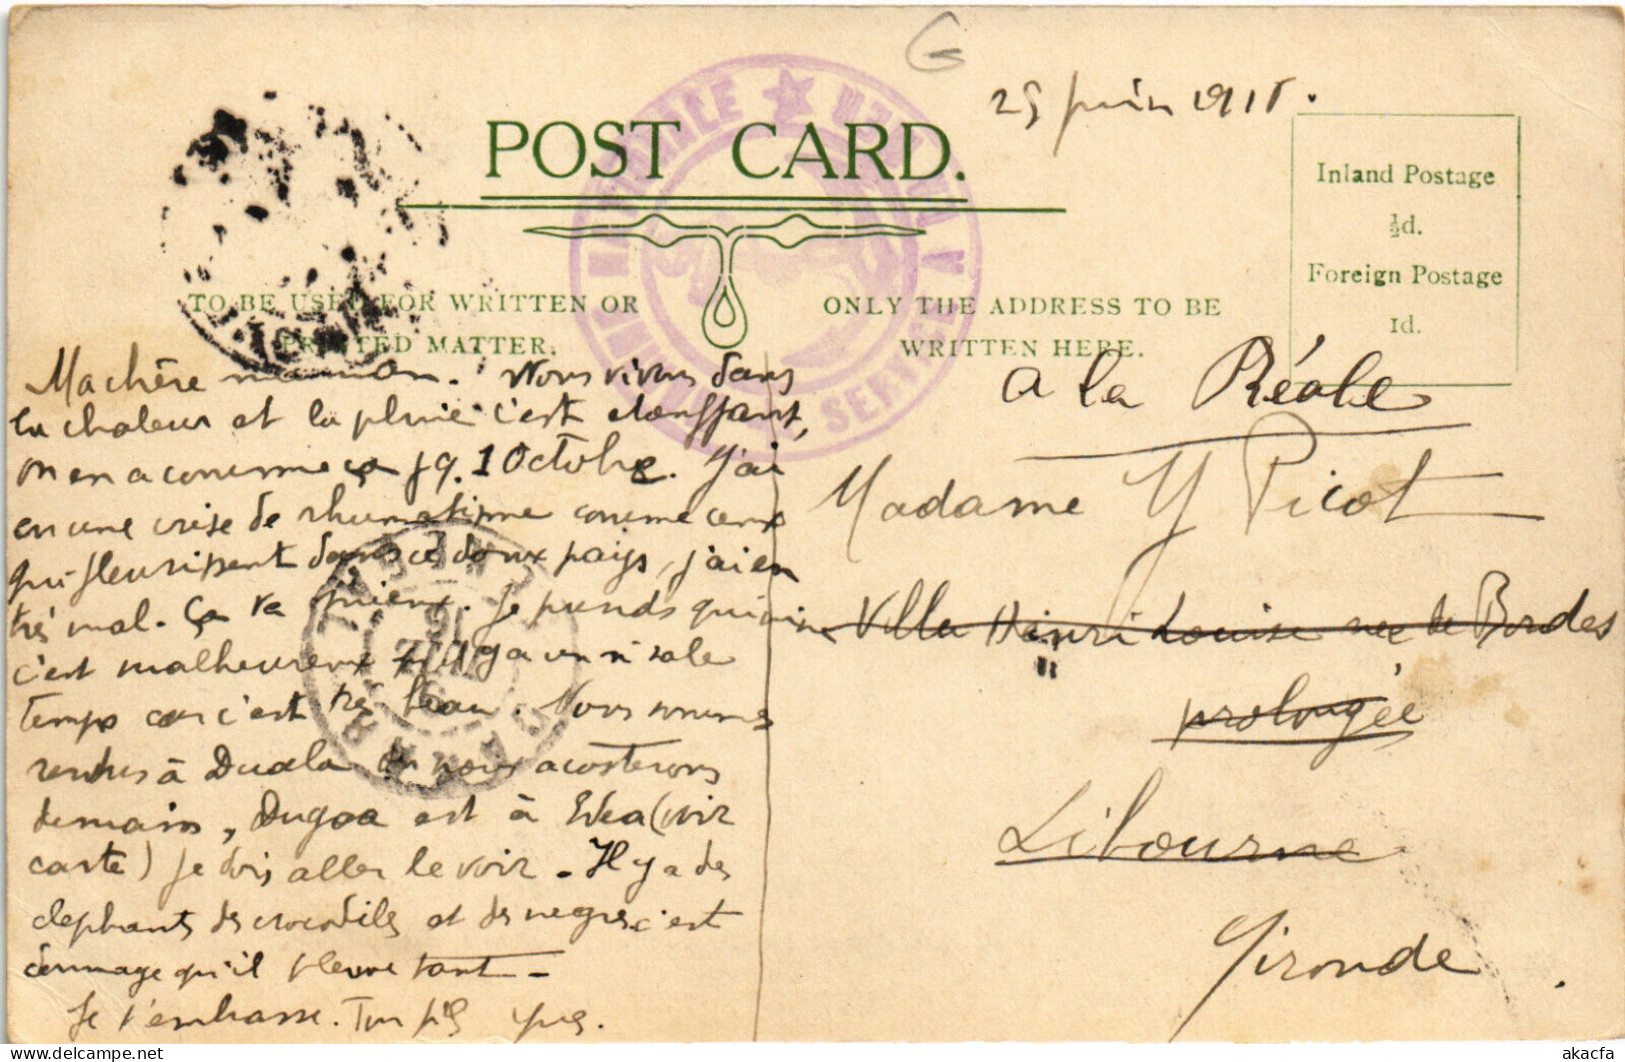 25 juin 1915.
POST CARD.
Inland Postage
½d.
Foreign Postage
1d.
TO BE USED FOR WRITTEN OR
PRINTED MATTER.
ONLY THE ADDRESS TO BE
WRITTEN HERE.
Ma chère maman. Nous vivons dans
la chaleur et la pluie c'est etouffant,
on en a comme ça jq. 1 Octobre. J'ai
eu une crise de rhumatisme comme ceux
qui fleurissent dans ces doux pays, j'ai eu
très mal. Ça va mieux. Je prends quinine
c'est malheureux qu'il y a un si sale
temps car c'est très beau. Nous sommes
rendus à Duala où nous accosterons
demain, Dugoa est à Edea (voir
carte) je dois aller le voir - Il y a des
elephants des crocodiles et des negres c'est
dommage qu'il pleuve tant -
Je t'embrasse. Ton fils Yves.
à la Réole
Madame Y Picot
Villa Henri Louise rue de Bordes
prolongée
Libourne
Gironde
SERVICE
akacfa